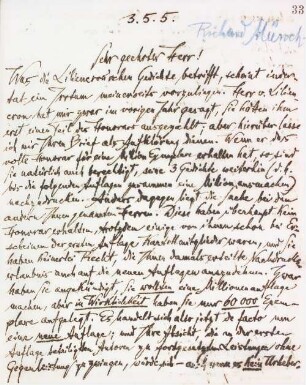 33
3.5.5.
Richard
Sehr geehrter Herr!
Was die Liliencronschen Gedichte, betrifft, scheint in der
tat ein Irrtum meinerseits vorzuliegen. Herr v. Lilien-
cron hat mir zwar im vorigen Jahr gesagt, Sie hätten ihm
erst einen Teil des Honorars ausgezahlt; aber hierüber
ich mir Ihren Brief als Aufklärung dienen. Wenn er das
volle Honorar für eine Million Exemplare erhalten hat, so sind
Sie natürlich auch berechtigt, seine 3 Gedichte weiterhin (d. h.
bis die folgenden Auflagen zusammen eine Million ausmachen)
nachzudrucken. Anders dagegen liegt die Sache bei den
andern Ihnen genannten Herren. Diese haben überhaupt kein
Honorar erhalten, trotzdem einige von ihnen schon bei Er-
scheinen der ersten Auflage Kartellmitglieder waren, und Sie
haben keinerlei Recht, die Ihnen damals erteilte Nachdruck-
erlaubnis auch auf die neuen Auflagen auszudehnen. Zwar
haben Sie angekündigt, Sie wollten eine Millionenauflage
machen, aber in Wirklichkeit haben Sie nur 60 000 Exem-
plare aufgelegt. Es handelt sich also jetzt de facto um
eine neue Auflage, und Ihre Absicht, die an der ersten
Auflage beteiligten Autoren zu fortgesetzten Leistungen ohne
Gegenleistung zu zwingen, würde sich auch wenn es kein Urheber